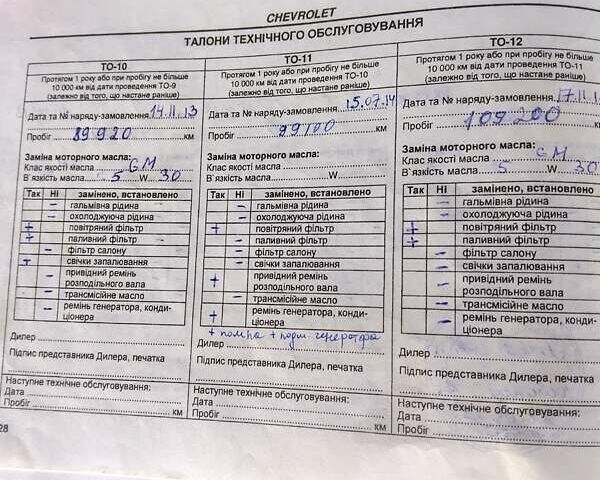 CHEVROLET
ТАЛОНИ ТЕХНІЧНОГО ОБСЛУГОВУВАННЯ
ТО-10
Протягом 1 року або при пробігу не більше
10 000 км від дати проведення ТО-9
(залежно від того, що настане раніше)
Дата та № наряду-замовлення 14.11.13
Пробіг 89920 км
Заміна моторного масла:
Клас якості масла GM
В`язкість масла 5 W 30
Так Ні замінено, встановлено
– гальмівна рідина
– охолоджуюча рідина
+ повітряний фільтр
+ паливний фільтр
– фільтр салону
+ свічки запалювання
– привідний ремінь
розподільного вала
– трансмісійне масло
– ремінь генератора, конди-
ціонера
Дилер
Підпис представника Дилера, печатка
Наступне технічне обслуговування:
Дата
Пробіг км
28
ТО-11
Протягом 1 року або при пробігу не більше
10 000 км від дати проведення ТО-10
(залежно від того, що настане раніше)
Дата та № наряду-замовлення 15.07.14
Пробіг 99100 км
Заміна моторного масла:
Клас якості масла
В`язкість масла W
Так Ні замінено, встановлено
– гальмівна рідина
– охолоджуюча рідина
+ повітряний фільтр
– паливний фільтр
– фільтр салону
– свічки запалювання
+ привідний ремінь
розподільного вала
– трансмісійне масло
+ ремінь генератора, конди-
ціонера
+ помпа + подш. генератора
Дилер
Підпис представника Дилера, печатка
Наступне технічне обслуговування:
Дата
Пробіг км
ТО-12
Протягом 1 року або при пробігу не більше
10 000 км від дати проведення ТО-11
(залежно від того, що настане раніше)
Дата та № наряду-замовлення
Пробіг 109200 км
Заміна моторного масла:
Клас якості масла GM
В`язкість масла 5 W 30
Так Ні замінено, встановлено
– гальмівна рідина
– охолоджуюча рідина
+ повітряний фільтр
+ паливний фільтр
– фільтр салону
– свічки запалювання
– привідний ремінь
розподільного вала
– трансмісійне масло
– ремінь генератора, конди-
ціонера
Дилер
Підпис представника Дилера, печатка
Наступне технічне обслуговування:
Дата
Пробіг км